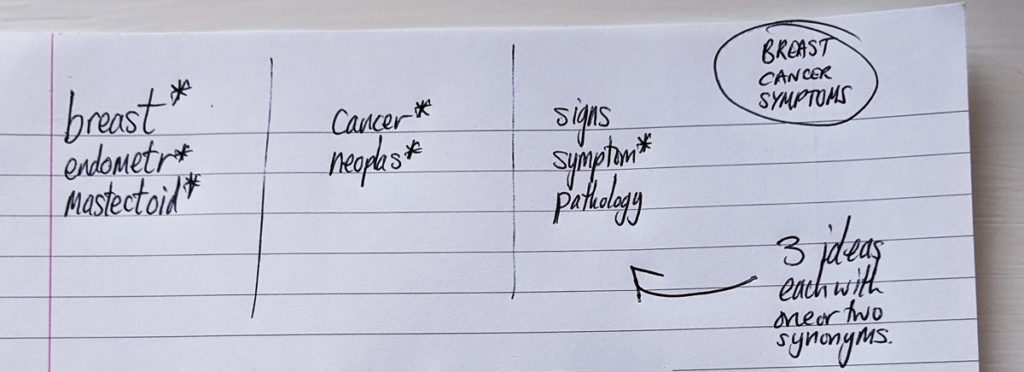 BREAST
CANCER
SYMPTOMS
breast*
endometr*
Mastectoid*
Cancer*
neoplas*
signs
symptom*
pathology
3 ideas
each with
one or two
synonyms.